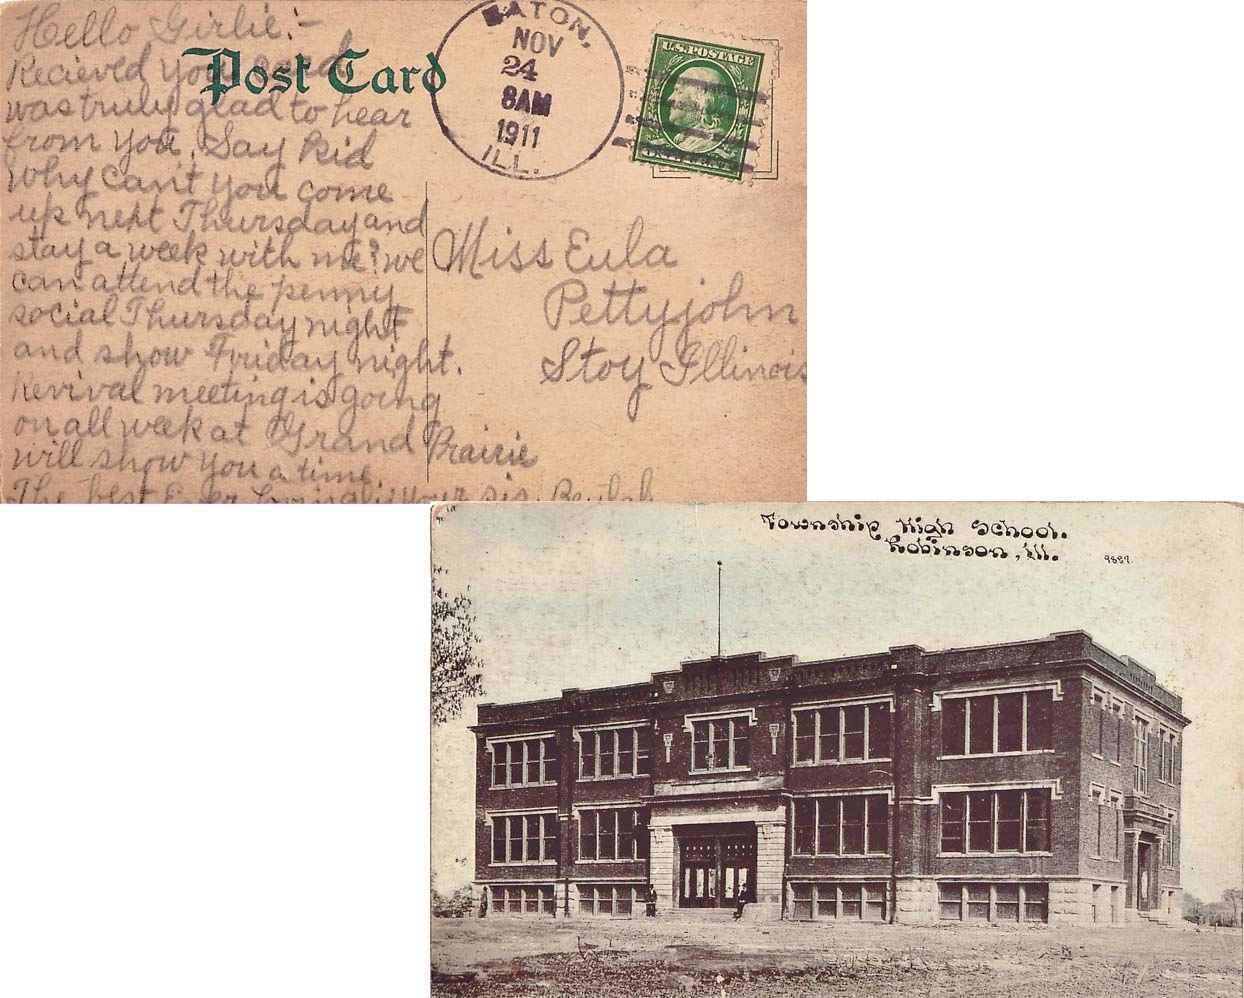 Hello Girlie:-
Recieved your card
was truly glad to hear
from you. Say Kid
Why can't you come
up next Thursday and
stay a week with me? we
can attend the penny
social Thursday night
and show Friday night.
Revival meeting is going
on all week at Grand Prairie
will show you a time.
The best Ever Loving lis your sis Beulah
Post Card
EATON.
NOV
24
8AM
1911
ILL.
U.S. POSTAGE
ONE CENT
Miss Eula
Pettyjohn
Stoy Illinois
Township High School.
Robinson, Ill.
9887.